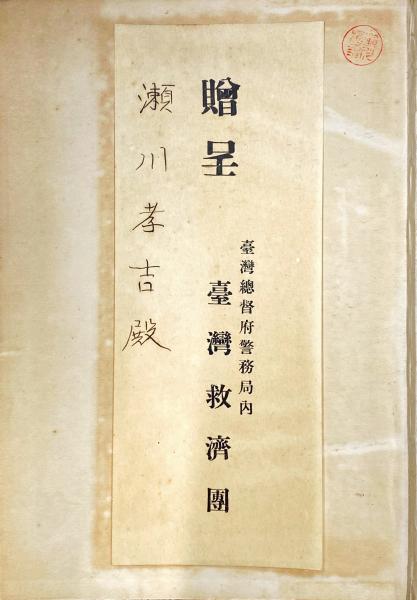 贈呈
臺灣總督府警務局內
臺灣救濟團
瀨川孝吉殿